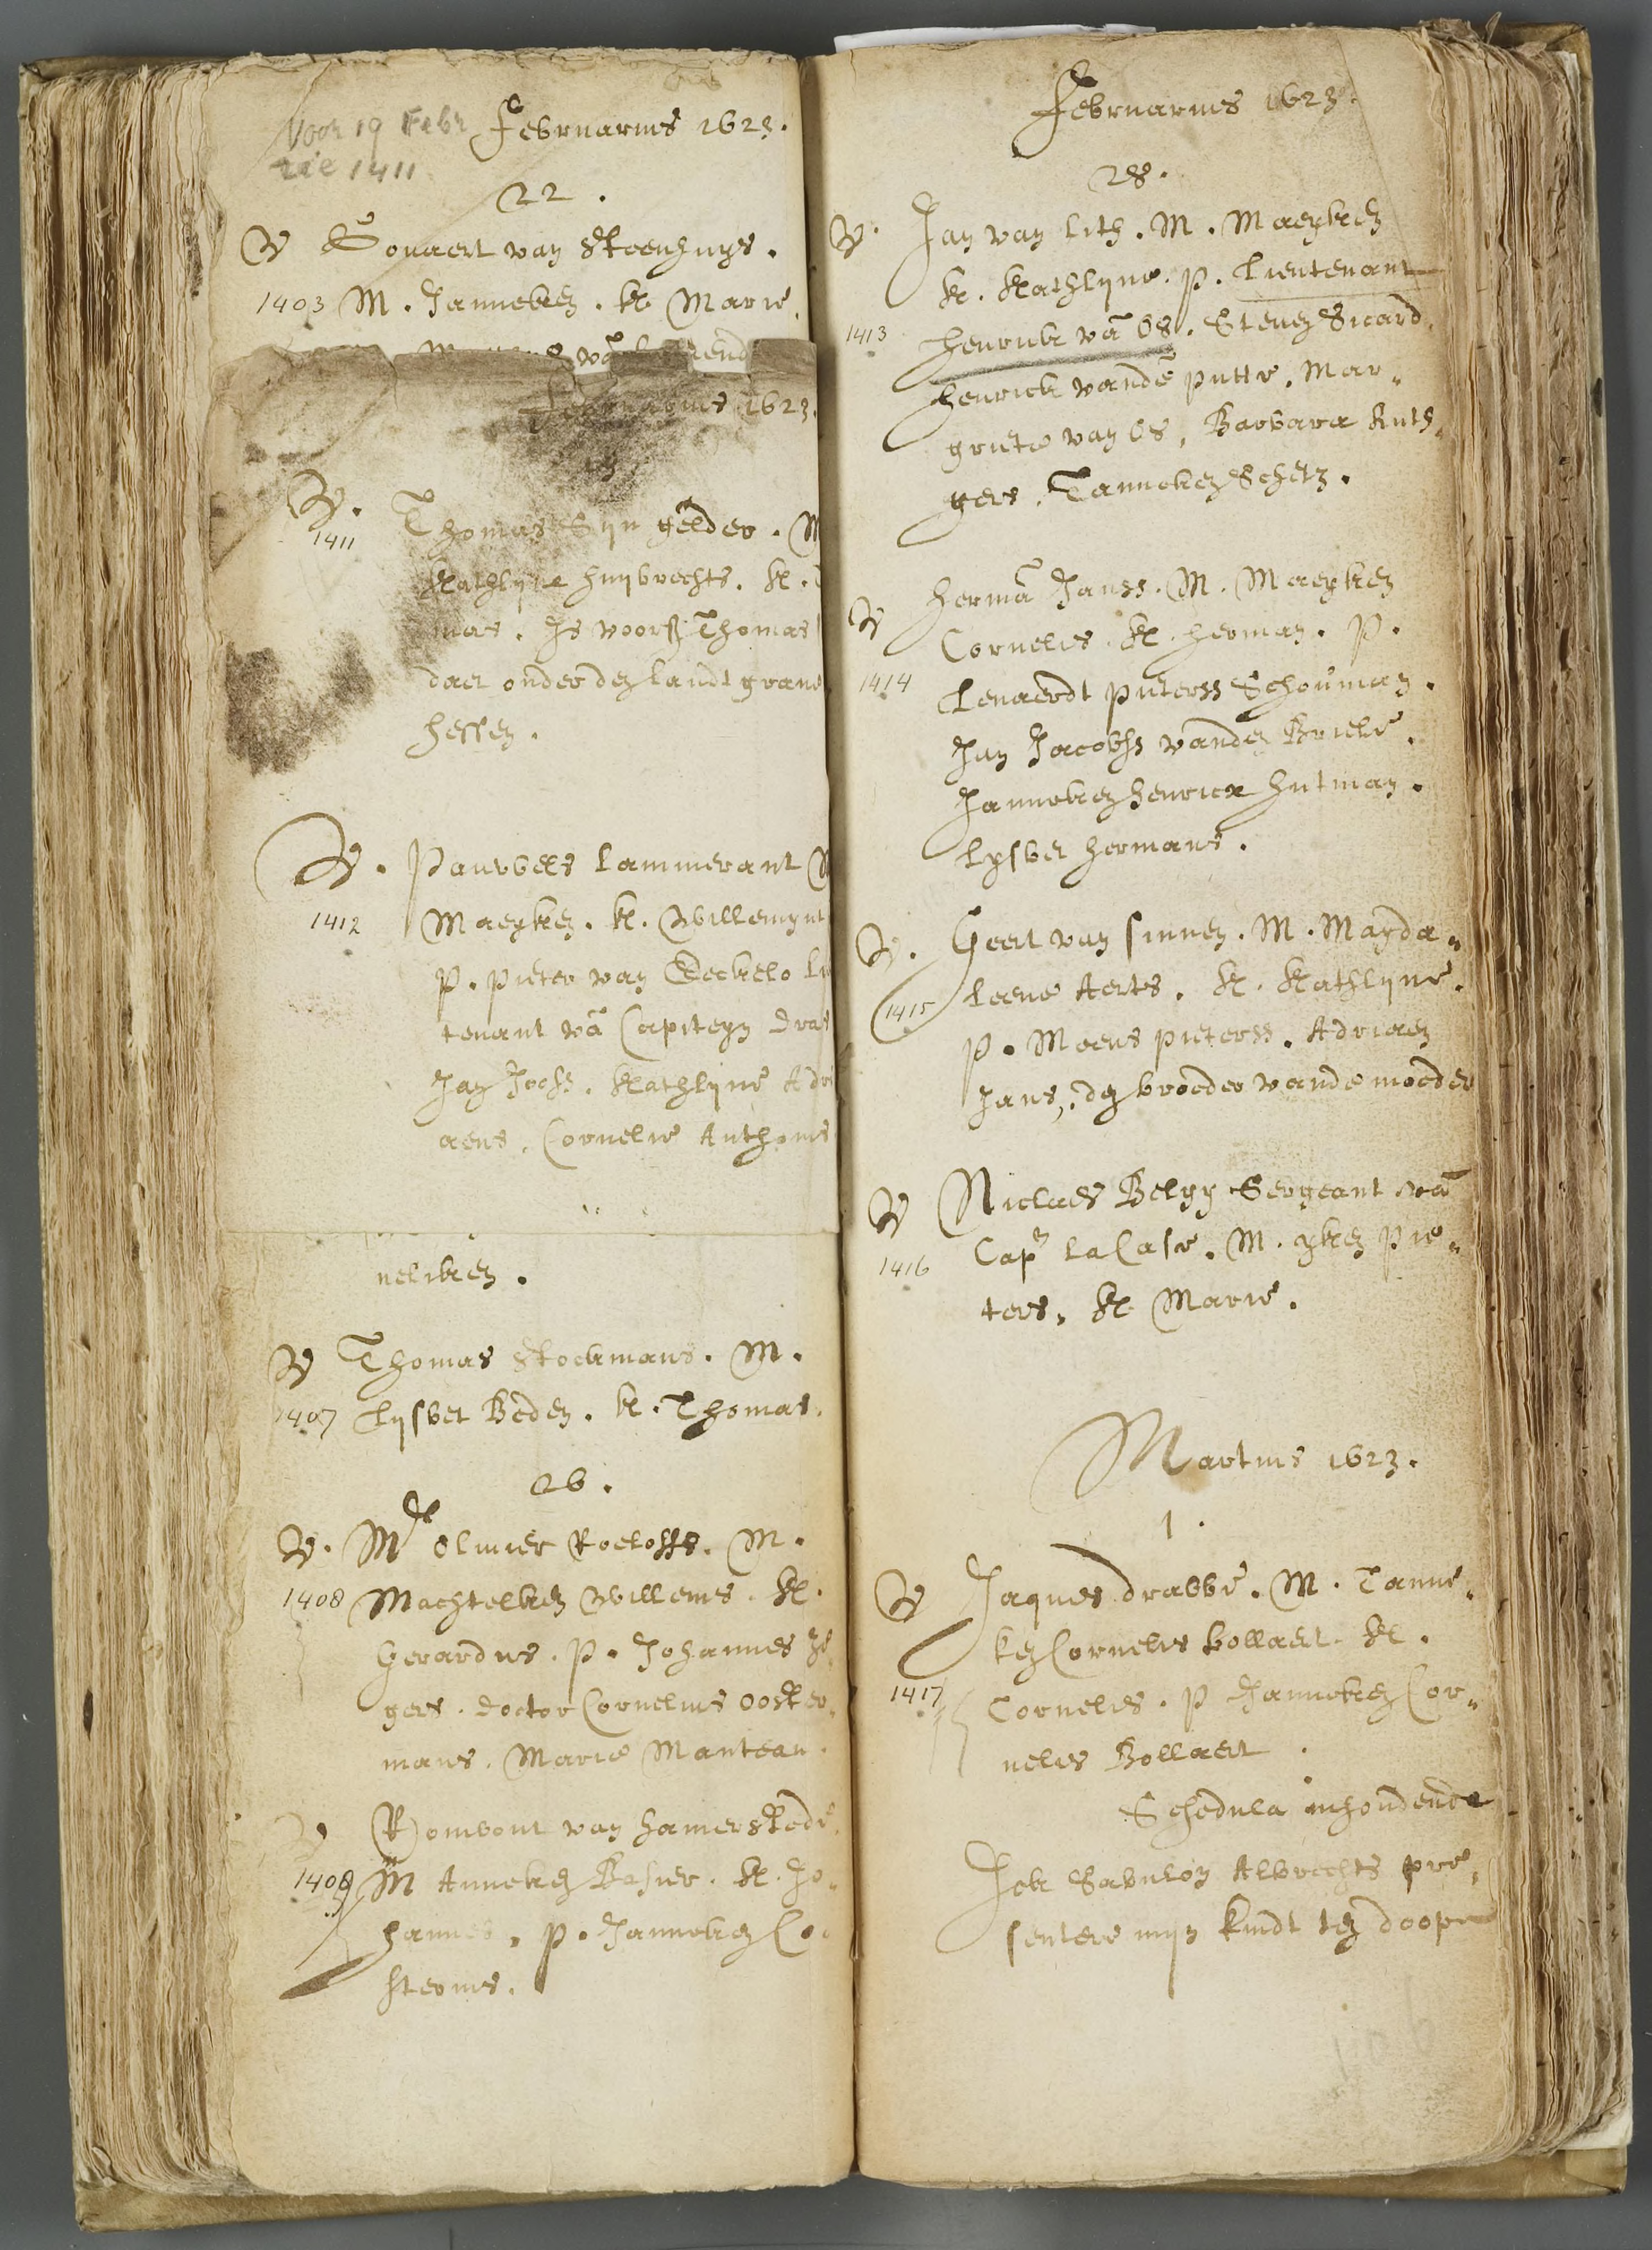 Voor 19 Febr
zie 1411
Februarius 1623.
22.
V Govaert van Steenhuys.
1403 M. Janneken. K. Marie.
Februarius 1623.
V.
1411 Thomas Syn gelder. M
Kathlyne Huybrechts. K.
mas. Is voors. Thomas
daer onder den landt grave
Hessen.
V. Pauwels Lammerant M
1412 Maeyken. K. Willemyn
P. Pieter van Eeckelo
tenant vā Capiteyn
Jan Jooss. Kathlyne Adri
aens. Cornelie Anthonis
neliken.
V Thomas Stockmans. M.
1407 Lysbet Beden. K. Thomas.
26.
V. Mr Olivier Roeloffs. M.
1408 Machtelken Willems. K.
Gerardus. P. Johannes
gers. Doctor Cornelius Ooster„
mans. Marie Manteau.
V Rombout van Hamerstede.
1409 M Anneken Basier. K. Jo„
hannes. P. Janneken
Februarius 1623.
28.
V. Jan van Lith. M. Maeyken
K. Kathlyne. P. Lieutenant
1413 Henrick vā Os. Steven Sicard.
Henrick vandē Putte. Mar„
griete van Os, Barbara Rut„
gers. Tanneken Schetz.
V Hermā Janss. M. Maeyken
Cornelis. K. Herman. P.
1414 Lenaerdt Pieterss Schouman.
Jan Jacobss vanden Briele.
Janneken Henricx Hutman.
Lysbet Hermans.
V. Geert van Sinnen. M. Magda„
1415 leene Aerts. K. Kathlyne.
P. Meeus Pieterss. Adriaen
Jans, den broeder vande moeder
V Niclaes Belgy Sergeant vā
Capn La Case. M. yken Pie„
1416 ters. K Marie.
Martius 1623.
1.
V Jaques Drabbe. M. Tanne„
ken Cornelis Bollaert. K.
1417 Cornelis. P Janneken Cor„
nelis Bollaert.
Schedula inhoudende
Ick Sabulon Albrechts pre„
sentere myn kindt ten doope